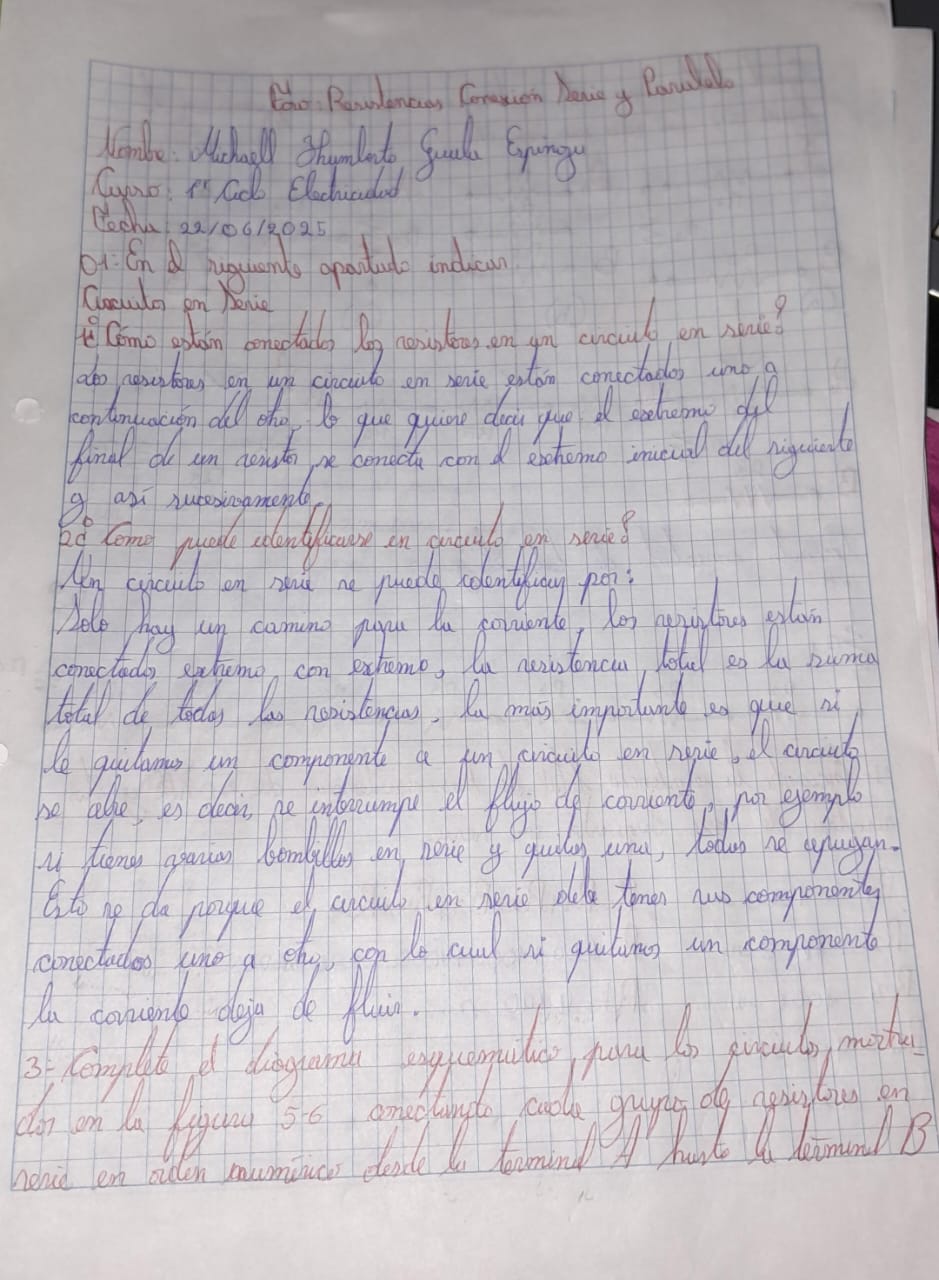 Resistencias Conexión Serie y Paralelo
Nombe: Michaell
1º Ciclo Electricidad
Fecha: 22/06/2025
01- En el siguiente apartado indicar
Circuitos en Serie
1: Cómo están conectados los resistores en un circuito en serie?
Los resistores en un circuito en serie están conectados uno a
continuación del otro, lo que quiere decir que el extremo del
final de un resistor, se conecta con el extremo inicial del siguiente
y así sucesivamente.
2: Como puede identificarse en circuito en serie?
Un circuito en serie se puede identificar por:
Solo hay un camino para la corriente, los resistores están
conectados extremo con extremo, la resistencia total es la suma
total de todas las resistencias, la más importante es que si
le quitamos un componente a un circuito en serie, el circuito
se abre, es decir, se interrumpe el flujo de corriente, por ejemplo
si tienes bombillas en serie y quitas una, todas se apagan.
Esto se da porque el circuito en serie debe tener sus componentes
conectados uno a otro, con lo cual si quitamos un componente
la corriente deja de fluir.
3-, Complete el diagrama esquemático, para los circuitos, mostra-
dos en la figura 5-6 conectando cada grupo de resistores en
serie en orden numérico desde la terminal A hasta la terminal B